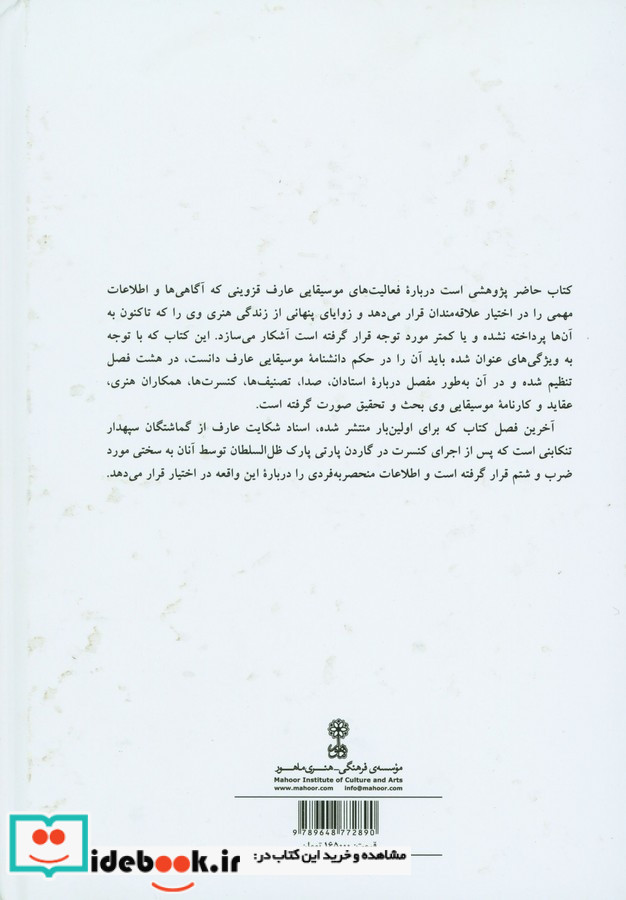 کتاب حاضر پژوهشی است دربارهٔ فعالیت‌های موسیقایی عارف قزوینی که آگاهی‌ها و اطلاعات
مهمی را در اختیار علاقه‌مندان قرار می‌دهد و زوایای پنهانی از زندگی هنری وی را که تاکنون به
آن‌ها پرداخته نشده و یا کمتر مورد توجه قرار گرفته است آشکار می‌سازد. این کتاب که با توجه
به ویژگی‌های عنوان شده باید آن را در حکم دانشنامهٔ موسیقایی عارف دانست، در هشت فصل
تنظیم شده و در آن به‌طور مفصل دربارهٔ استادان، صدا، تصنیف‌ها، کنسرت‌ها، همکاران هنری،
عقاید و کارنامهٔ موسیقایی وی بحث و تحقیق صورت گرفته است.
آخرین فصل کتاب که برای اولین‌بار منتشر شده، اسناد شکایت عارف از گماشتگان سپهدار
تنکابنی است که پس از اجرای کنسرت در گاردن پارتی پارک ظل‌السلطان توسط آنان به سختی مورد
ضرب و شتم قرار گرفته است و اطلاعات منحصربه‌فردی را دربارهٔ این واقعه در اختیار قرار می‌دهد.
مؤسسه‌ی فرهنگی-هنری ماهور
Mahoor Institute of Culture and Arts
www.mahoor.com info@mahoor.com
9 789648 772890
مشاهده و خرید این کتاب در:
idebook.ir